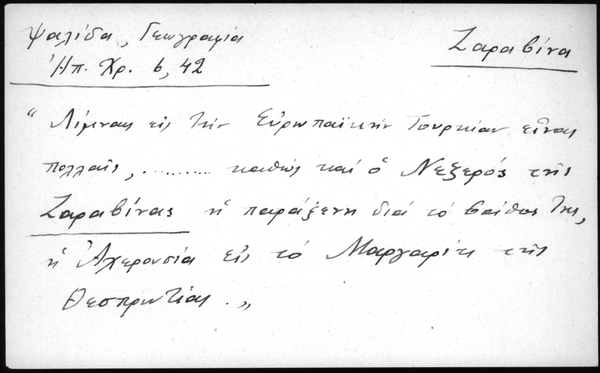 Ψαλίδα, Γεωγραφία
Ζαραβίνα
Ἠπ. Χρ. 6, 42
“ Λίμνας εἰς τὴν Εὐρωπαϊκὴν Τουρκίαν εἶναι
πολλαῖς, .......... καθὼς καὶ ὁ Νεζερὸς τῆς
Ζαραβίνας ἡ παράξενη διὰ τὸ βάθος της,
ἡ Ἀχερουσία εἰς τὸ Μαργαρίτι τῆς
Θεσπρωτίας. „